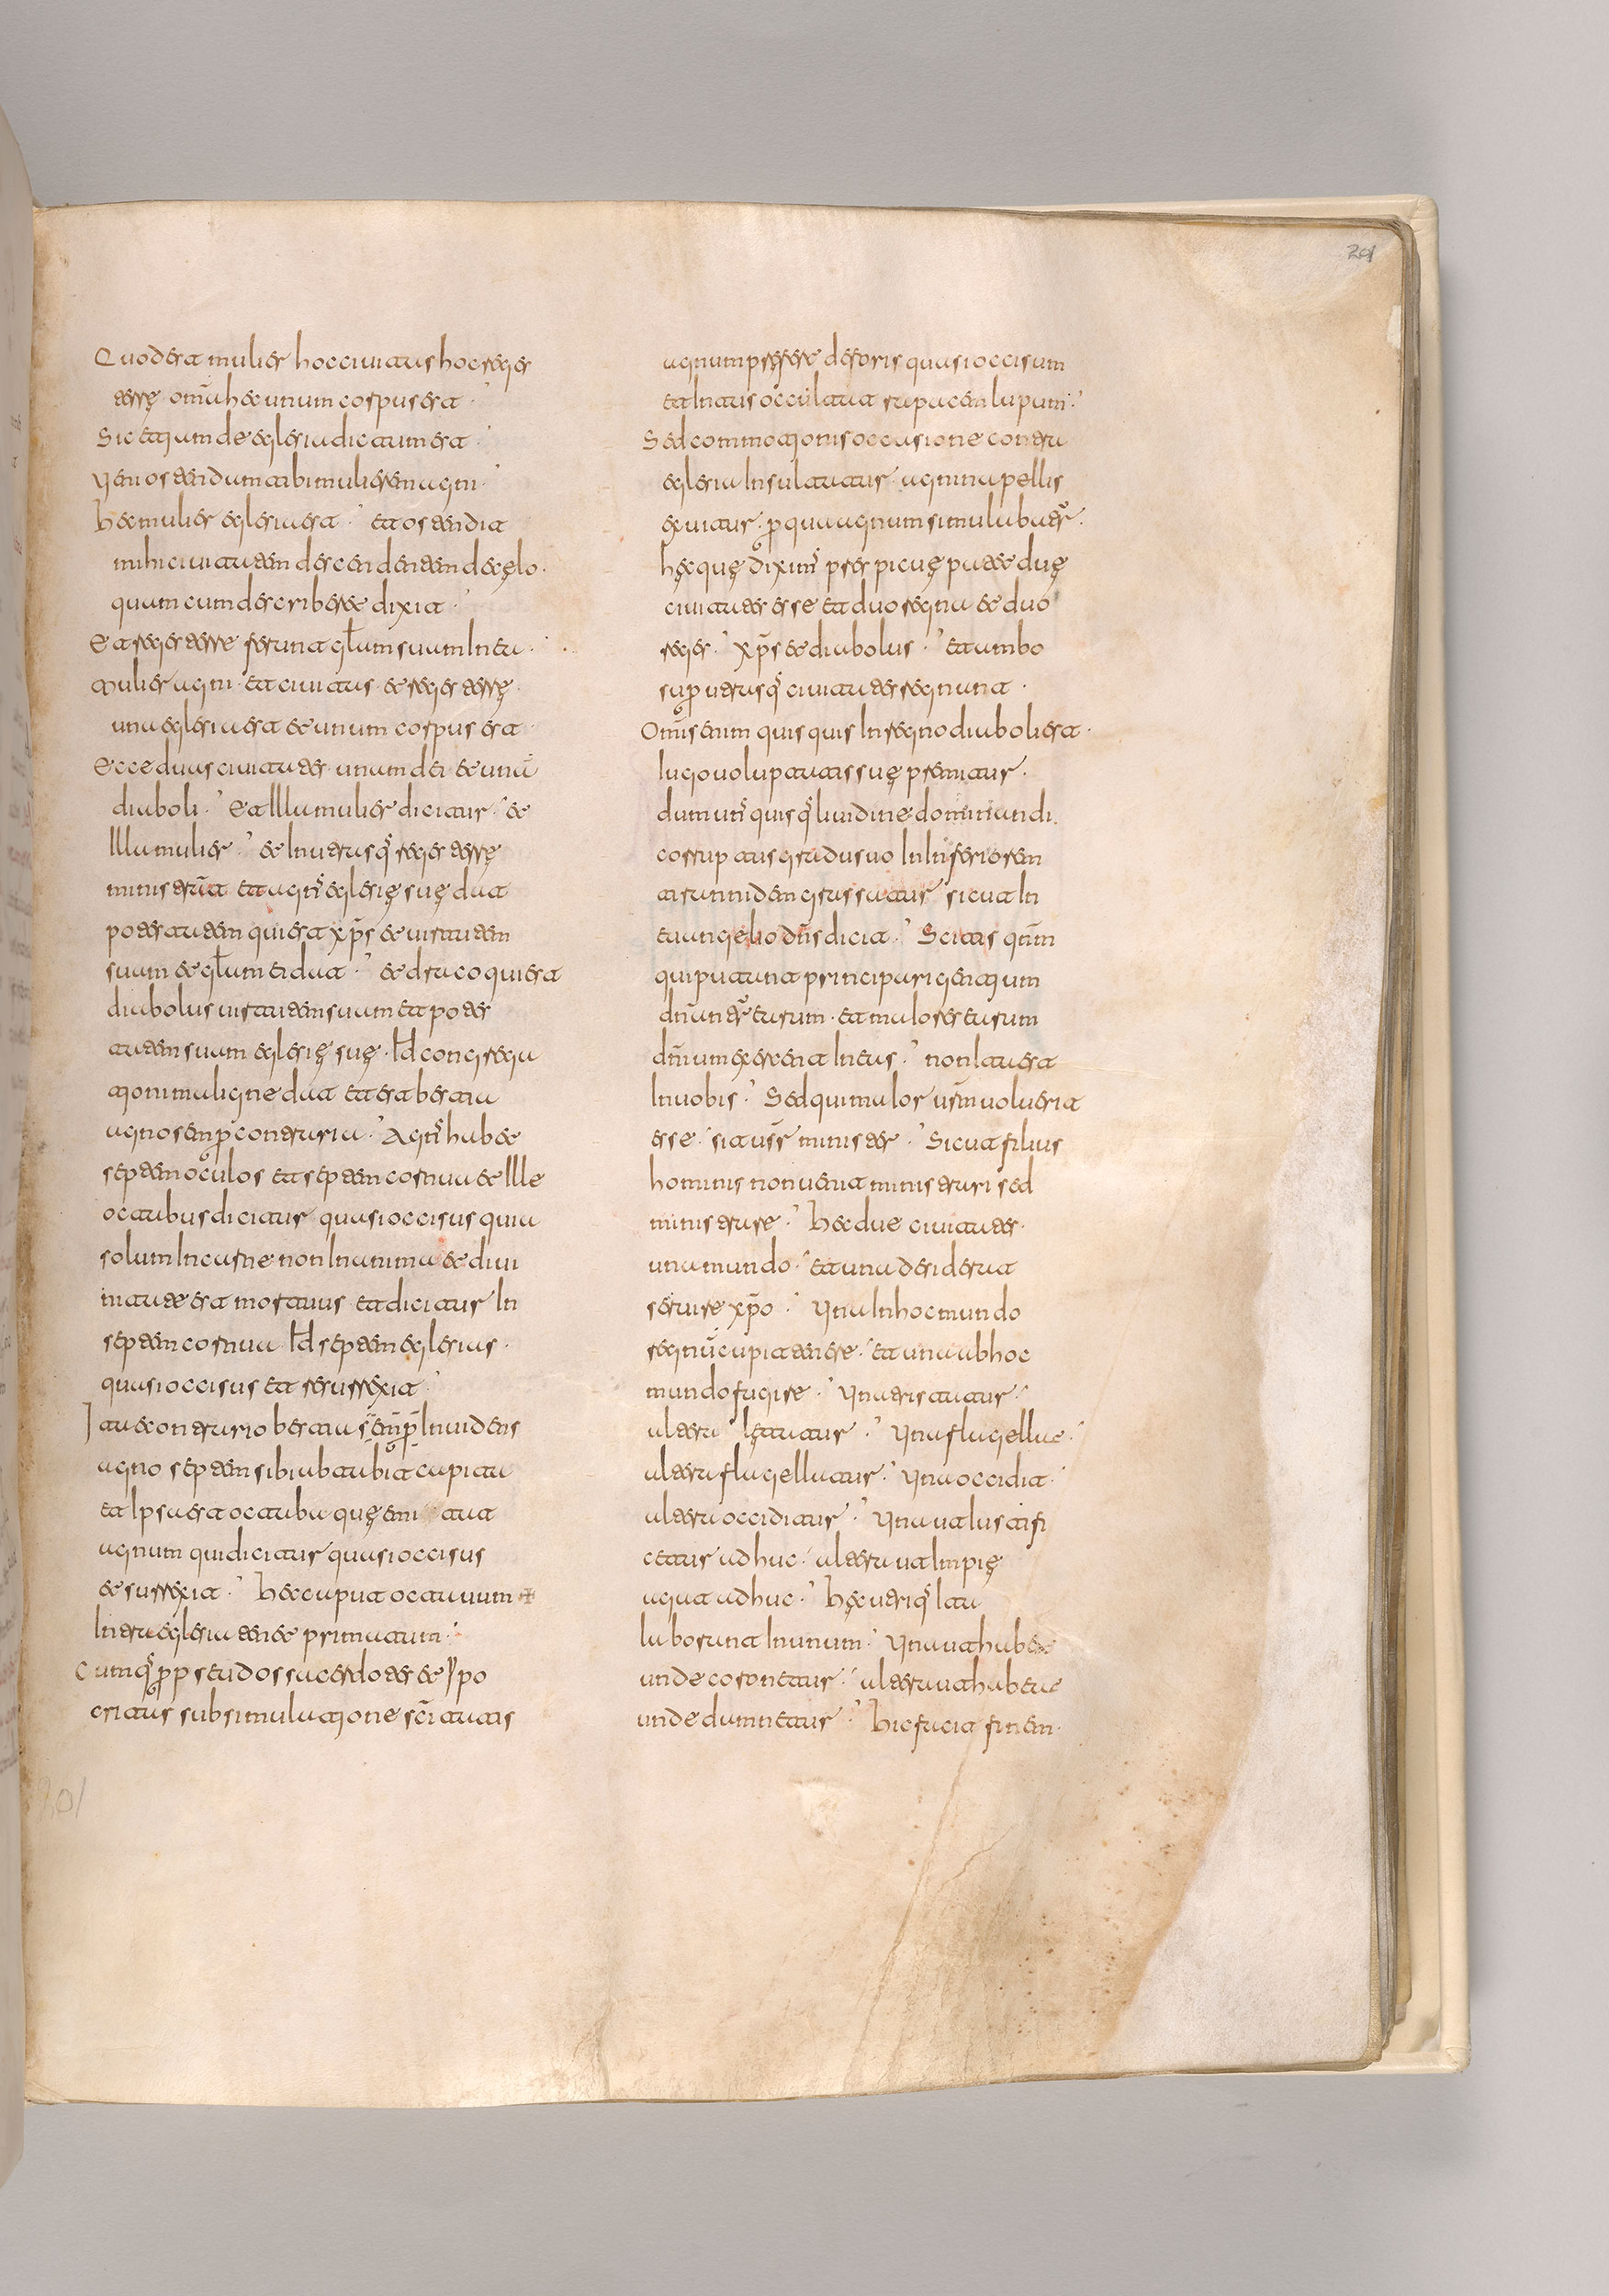 Quod est mulier hoc ciuitas hoc reges
terrę · om̄a hec unum corpus est ·
Sic etiam de eglesia dictum est ·
Veni ostendam tibi mulierem agni ·
Hec mulier eglesia est · et ostendit
mihi ciuitatem descendentem de cęlo ·
quam cum describeret dixit ·
Et reges terre ferunt gl̄am suam In ea ·
Mulier agni · et ciuitas · et reges terrę ·
una eglesia est et unum corpus est ·
Ecce duas ciuitates · unam dei · et unā
diaboli · Et Illa mulier dicitur · et
Illa mulier · et In utrasq̄ reges terrę
ministrāt et agn̄s eglesię suę dat
potestatem qui est xp̄s et uirtutem
suam et gl̄am ei dat · et draco qui est
diabolus uirtutem suam et potes
tatem suam eglesię suę · Id congrega
tioni maligne dat et est bestia
agno semp̄ contraria · Agn̄s habet
septem oculos et septem cornua et Ille
octabus dicitur quasi occisus quia
solum In carne non In anima et diui
nitate est mortuus et dicitur In
septem cornua Id septem eglesias ·
quasi occisus et resurrexit ·
Ita econtrario bestia sēmp̄ Inuidens
agno septem sibi
et Ipsa est octaba quę
agnum qui dicitur quasi occisus
et surrexit · Hec caput octauum
Intra eglesia tenet primatum ·
Cumq̄ p̄ pseudos sacerdotes et Ypo
critas sub simulatione sc̄itatis
agnum pręferet deforis quasi occisum
et Intus occultat rapacem lupum ·
Sed commotionis occasione contra
eglesia Insultatur · agnina pellis
exuitur · p̄ qua agnum simulabatur ·
hęc quę dixims perspicuę patet duę
ciuitates esse et duo regna et duo
reges · xp̄s et diabolus · et ambo
sup̄ utrasq̄ ciuitates regnant ·
Omn̄s enim quisquis In regno diaboli est ·
laqo uoluptatis suę premitur ·
dum unsquisq̄ liuidine dominandi
corruptus gradu suo In Inferiorem
atrum idem grassatur sicut In
euangelio dn̄s dicit · Scitis qn̄m
qui putant principari gentium
dn̄antur eorum · et maiores eorum
dn̄ium exercent In eos · non Ita est
In uobis · Sed qui maior ur̄m uoluerit
esse · sit uer̄ minister · Sicut filius
hominis non uenit ministrari sed
ministrare · Hec due ciuitates ·
una mundo · et una desiderat
seruire xp̄o · Una In hoc mundo
regnū cupit tenere · et una ab hoc
mundo fugire · Una tristatur ·
altera lętatur · Una flagellat ·
altera flagellatur · Una occidit ·
altera occiditur · Una ut Iustifi
cetur adhuc · altera ut Impię
agat adhuc · Hęc utriq̄ Ita
laborant In unum · Una ut habeat
unde coronetur · altera ut habeat
unde damnetur · Hic facit finem ·
201
201